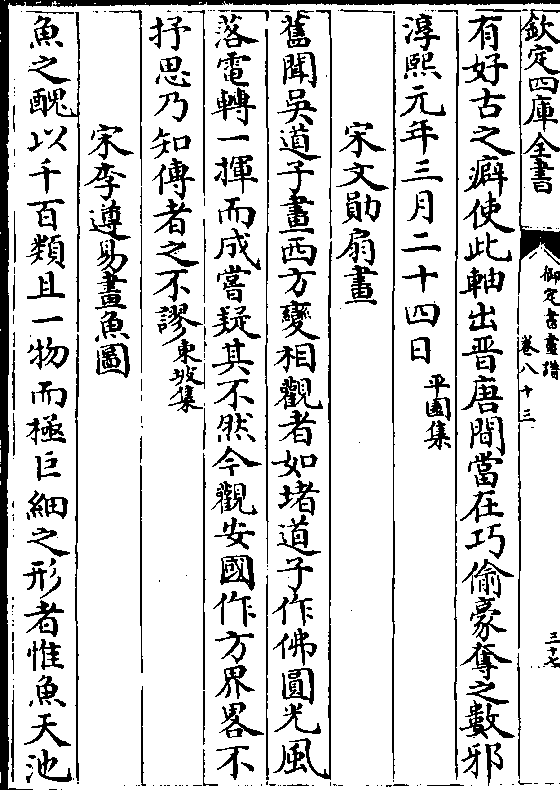 欽定四庫全書
御定書畫譜
卷八十三
三十七
有好古之癖使此軸出晋唐間當在巧偷豪奪之數邪
淳熙元年三月二十四日平園集
宋文勛扇畫
舊聞吳道子畫西方變相觀者如堵道子作佛圓光風
落電轉一揮而成嘗疑其不然今觀安國作方界畧不
抒思乃知傳者之不謬東坡集
宋李遵易畫魚圖
魚之醜以千百類且一物而極巨細之形者惟魚天池